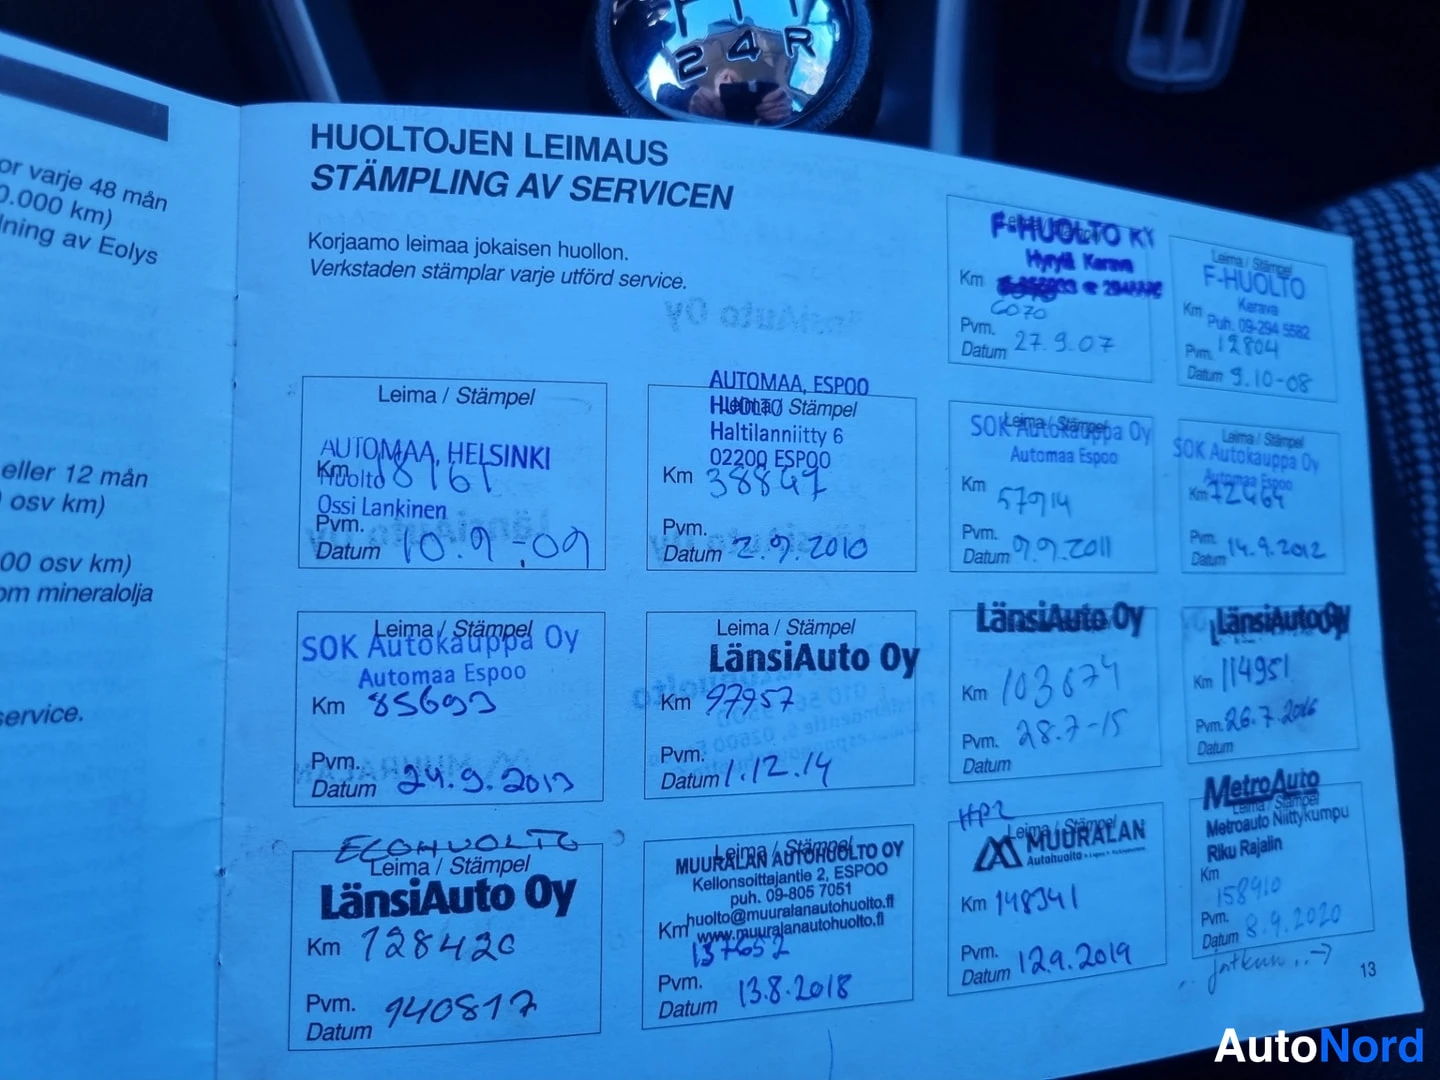 2 4 R
or varje 48 mån
0.000 km)
ning av Eolys
eller 12 mån
osv km)
00 osv km)
om mineralolja
service.
HUOLTOJEN LEIMAUS
STÄMPLING AV SERVICEN
Korjaamo leimaa jokaisen huollon.
Verkstaden stämplar varje utförd service.
F-HUOLTO KY
Hyrylä Kerava
Km
6070
Pvm.
Datum 27.9.07
Leima / Stämpel
F-HUOLTO
Kerava
Km
Puh. 09-294 5582
Pvm. 12804
Datum 9.10-08
Leima / Stämpel
AUTOMAA, HELSINKI
Km 18161
Huolto
Ossi Lankinen
Pvm.
Datum 10.9.-09
AUTOMAA, ESPOO
HUOLTO
Leima / Stämpel
Haltilanniitty 6
02200 ESPOO
Km 38847
Pvm.
Datum 2.9.2010
Leima / Stämpel
SOK Autokauppa Oy
Automaa Espoo
Km 57914
Pvm.
Datum 9.9.2011
Leima / Stämpel
SOK Autokauppa Oy
Automaa Espoo
Km 72464
Pvm.
Datum 14.9.2012
Leima / Stämpel
SOK Autokauppa Oy
Automaa Espoo
Km 85693
Pvm.
Datum 24.9.2013
Leima / Stämpel
LänsiAuto Oy
Km 97957
Pvm.
Datum 1.12.14
LänsiAuto Oy
Km 103674
Pvm. 28.7-15
Datum
LänsiAuto Oy
Km 114951
Pvm. 26.7.2016
Datum
ECOHUOLTO
Leima / Stämpel
LänsiAuto Oy
Km 128420
Pvm.
Datum 140817
Leima / Stämpel
MUURALAN AUTOHUOLTO OY
Kellonsoittajantie 2, ESPOO
puh. 09-805 7051
huolto@muuralanautohuolto.fi
Km www.muuralanautohuolto.fi
137652
Pvm.
Datum 13.8.2018
Leima / Stämpel
MUURALAN
Autohuolto
Km 148341
Pvm.
Datum 12.9.2019
MetroAuto
Leima / Stämpel
Metroauto Niittykumpu
Riku Rajalin
Km
158910
Pvm.
Datum 8.9.2020
jatkuu..→
13
AutoNord